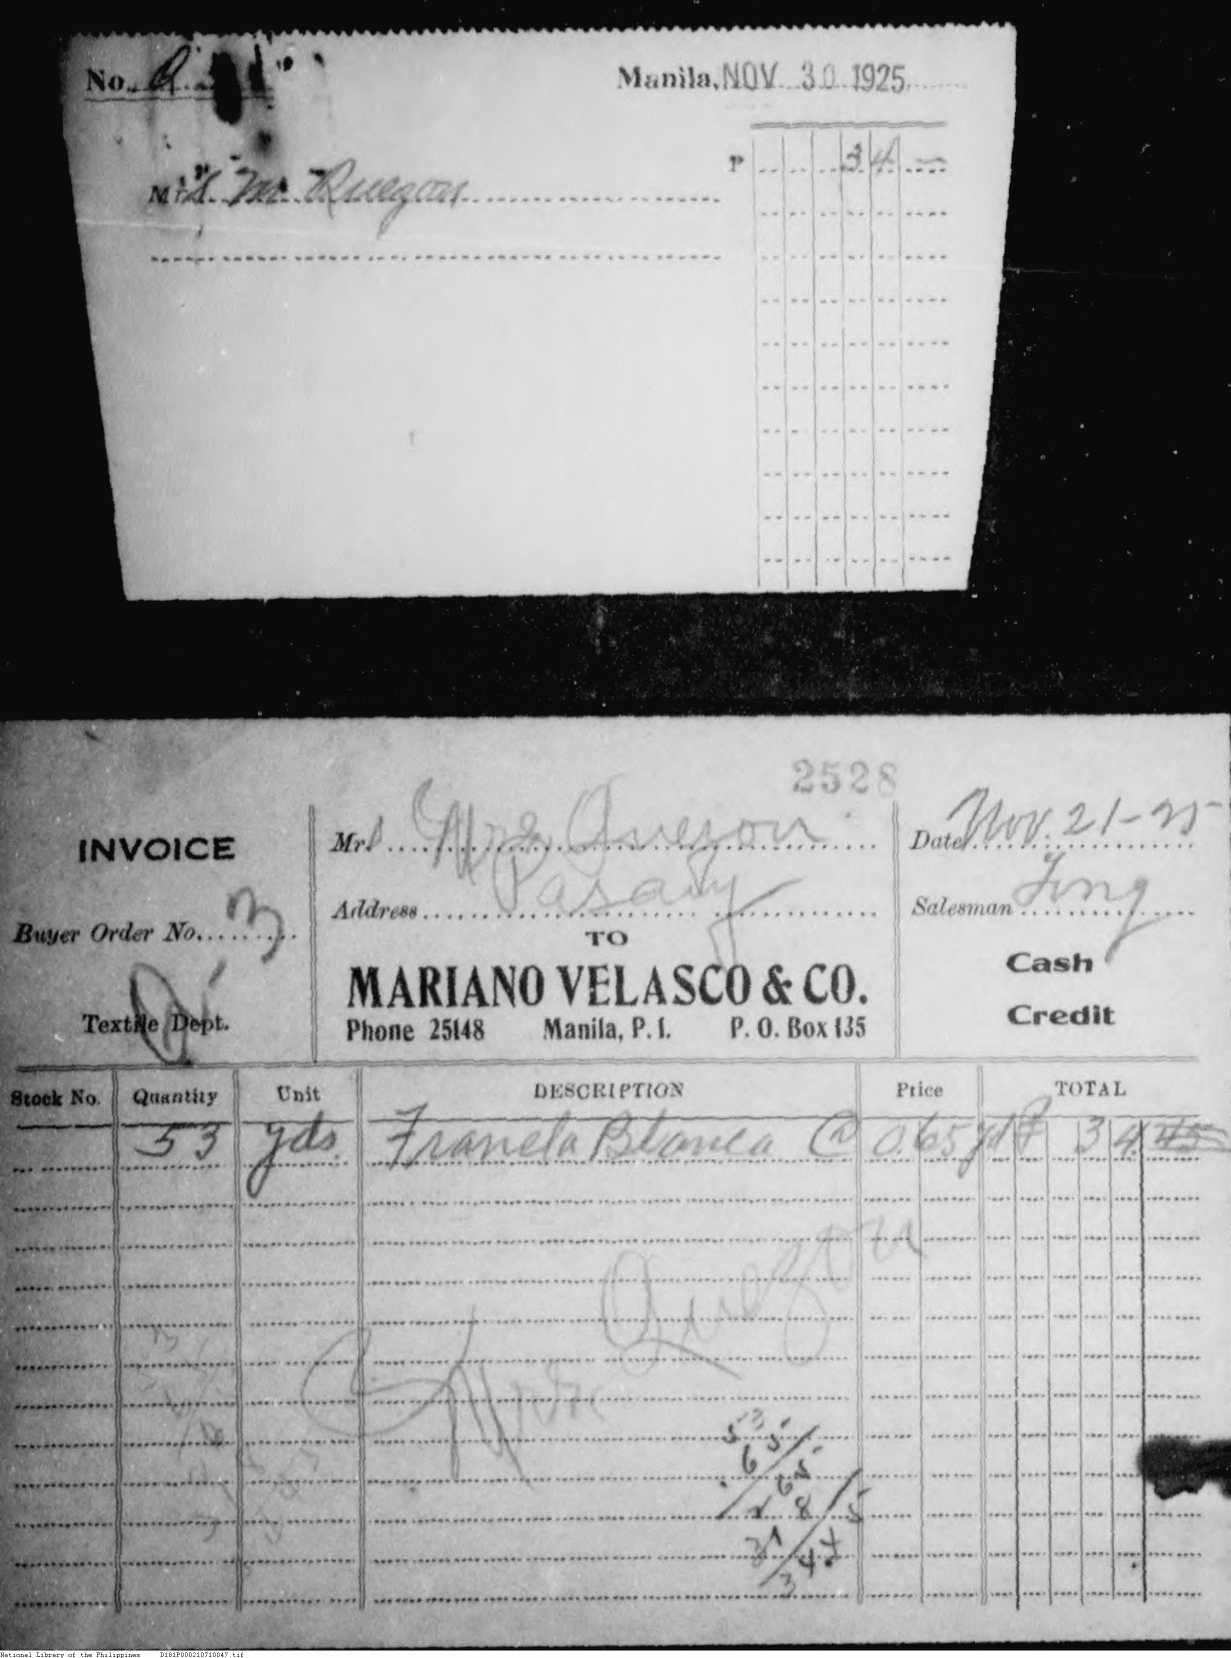 No.
Manila, NOV 30 1925
Mrs. M. Quezon
P 34 —
2528
INVOICE
Mrs Mrs. Quezon
Date Nov. 21-25
Address Pasay
Salesman
Buyer Order No. 3
TO
Cash
MARIANO VELASCO & CO.
Credit
Textile Dept.
Phone 25148 Manila, P. I. P. O. Box 135
Stock No. Quantity Unit DESCRIPTION Price TOTAL
53 yds. Franela Blanca @ 0.65 yd ₱ 34.45
Quezon
Mrs
53
65
265
318
34.45
National Library of the Philippines D181P000210710047.tif